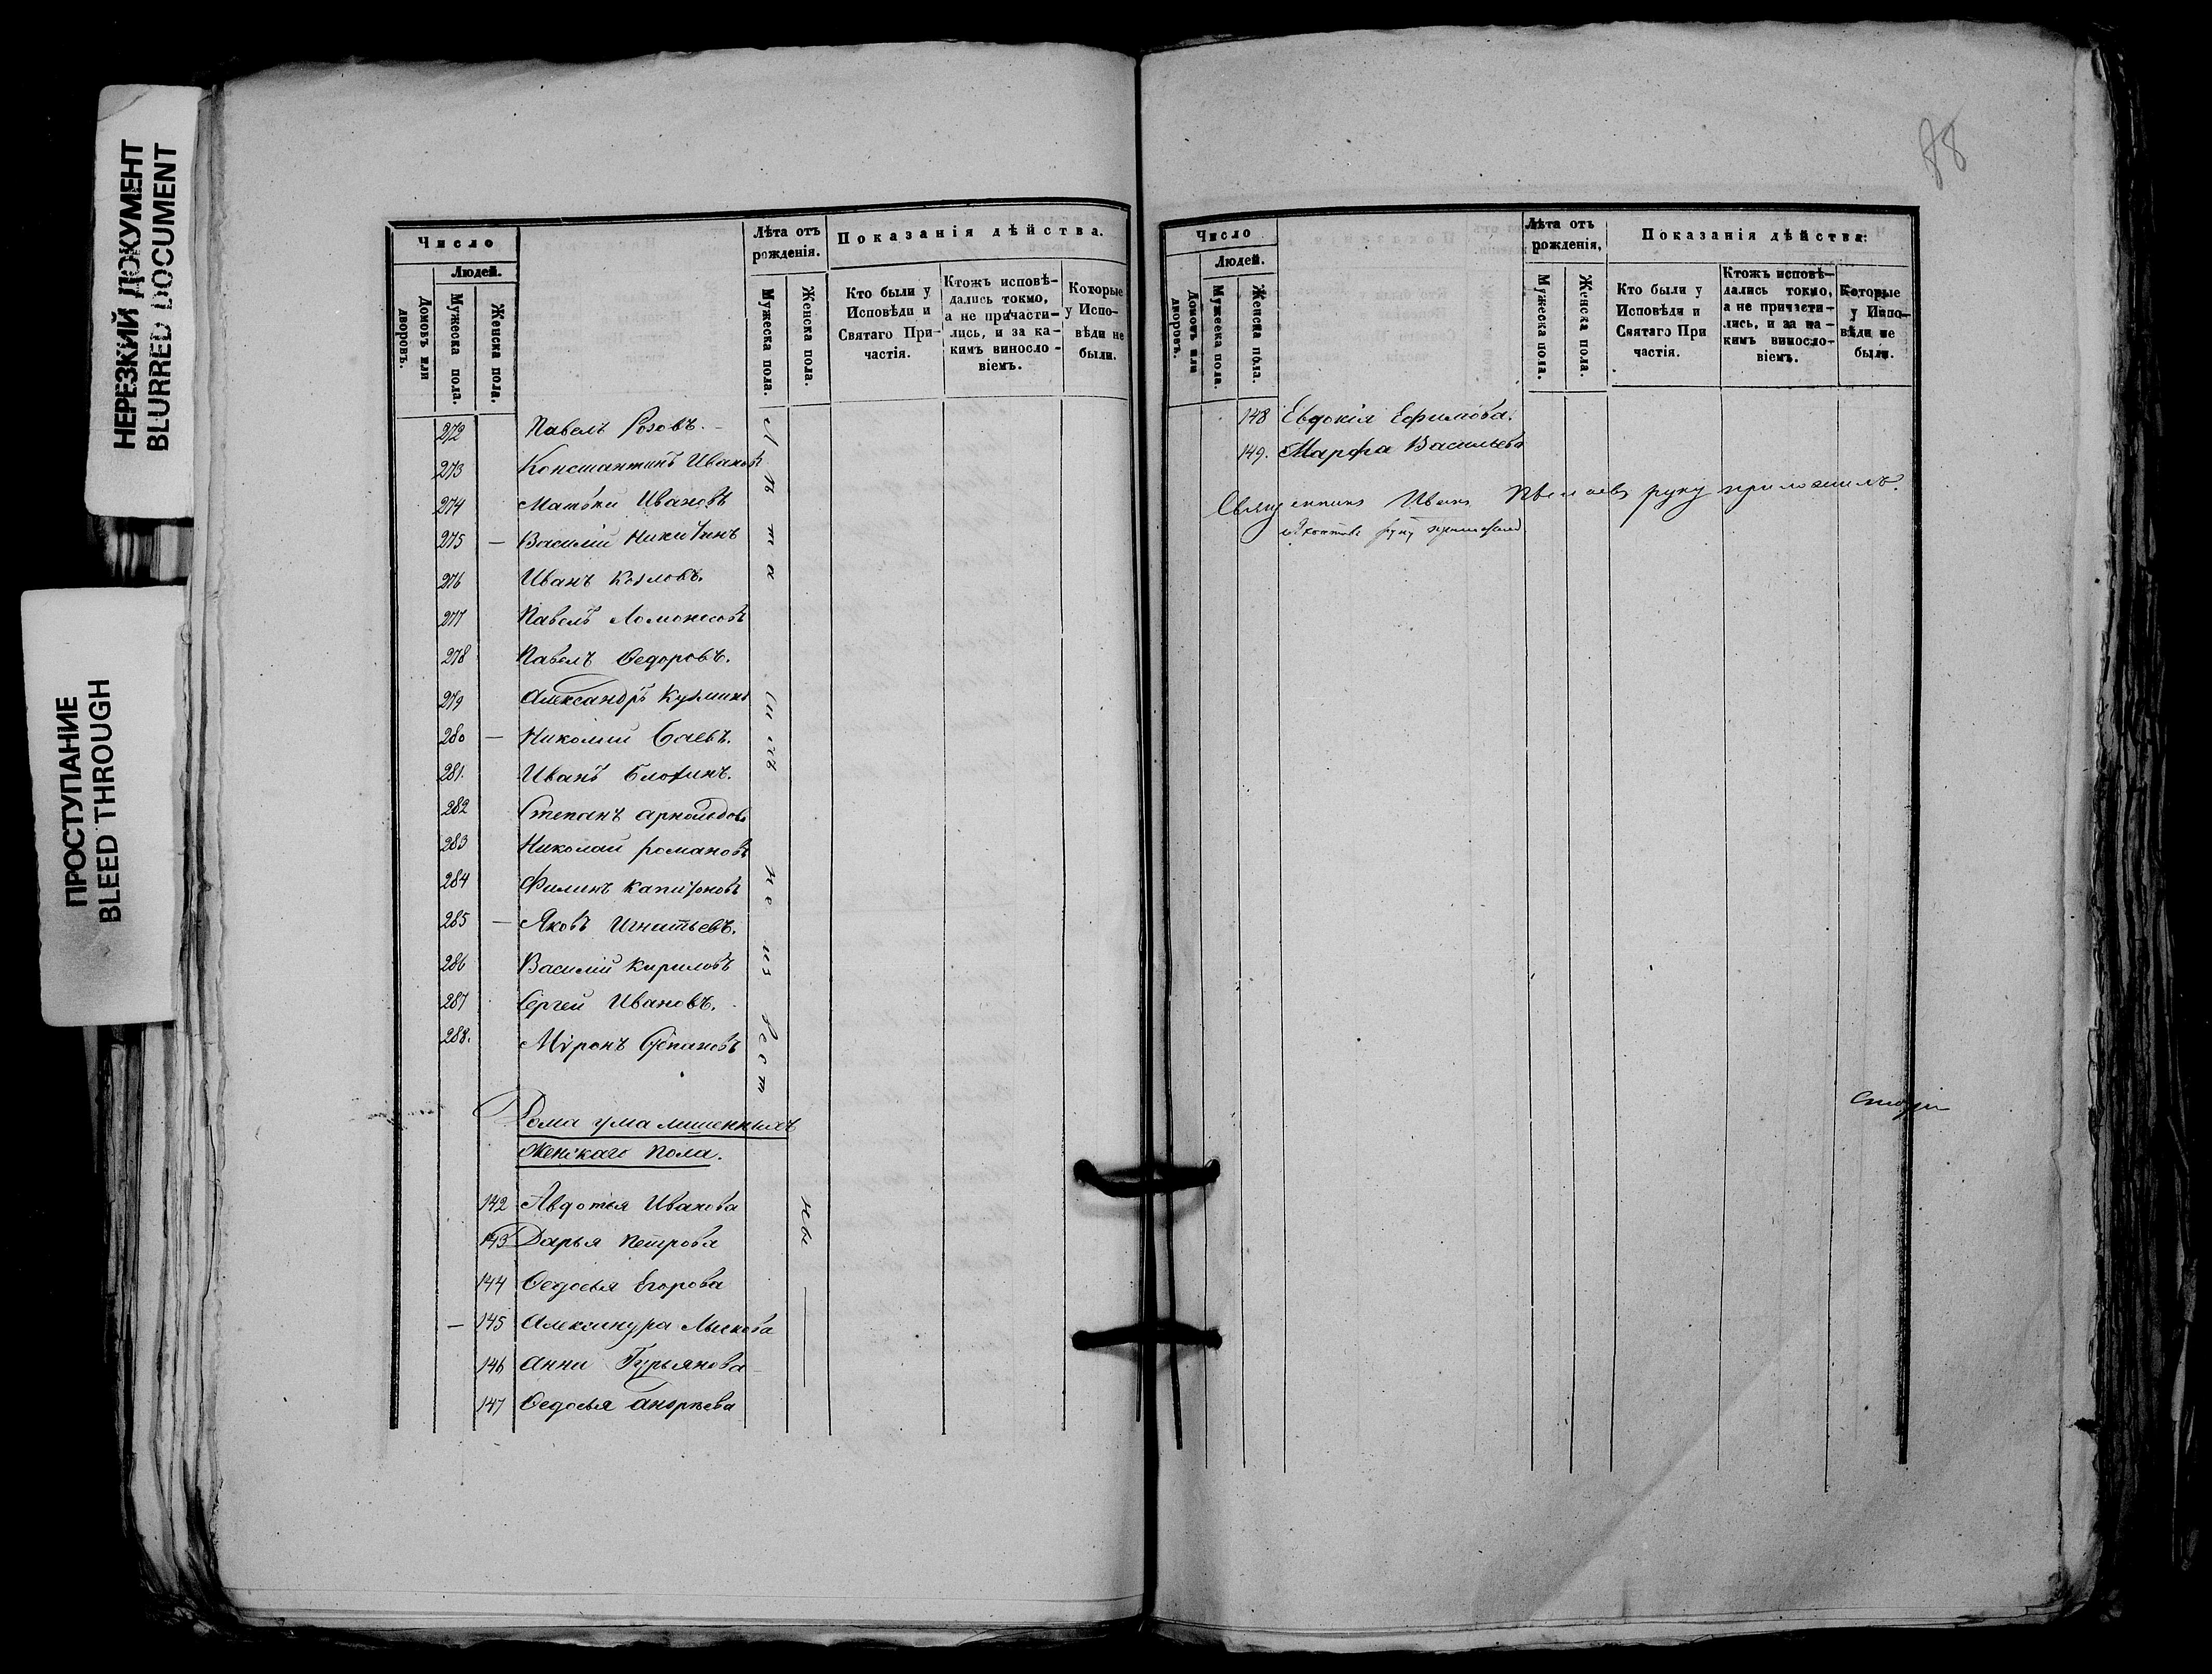 НЕРЕЗКИЙ ДОКУМЕНТ
BLURRED DOCUMENT
ПРОСТУПАНИЕ
BLEED THROUGH
Число
Людей.
Домовъ или дворовъ.
Мужеска пола.
Женска пола.
Лѣта отъ рожденія.
Мужеска пола.
Женска пола.
Показанія дѣйства.
Кто были у Исповѣди и Святаго Причастія.
Ктожъ исповѣдались токмо, а не причастились, и за какимъ винословіемъ.
Которые у Исповѣди не были.
272 Павелъ Розовъ.
273 Константинъ Ивановъ
274 Матвѣй Ивановъ
275 — Василій Никитинъ
276 Иванъ Козловъ.
277 Павелъ Ломоносовъ
278 Павелъ Ѳедоровъ.
279 Александръ Кузминъ
280 — Николай Баевъ.
281. Иванъ Блохинъ.
282 Степанъ Арнольдовъ
283 Николай Романовъ
284 Филипъ Капитоновъ
285 — Яковъ Игнатьевъ.
286 Василій Кириловъ
287 Сергей Ивановъ.
288. Мѵронъ Степановъ
Лѣта сихъ не извест
ны
Дома умалишенныхъ
Женскаго пола.
142 Авдотья Иванова
143 Дарья Петрова
144 Ѳедосья Егорова
— 145 Александра Мыскова
146 Анна Гурьянова
147 Ѳедосья Андреева
88
Число
Людей.
Домовъ или дворовъ.
Мужеска пола.
Женска пола.
Лѣта отъ рожденія,
Мужеска пола.
Женска пола.
Показанія дѣйства:
Кто были у Исповѣди и Святаго Причастія.
Ктожъ исповѣдались токмо, а не причастились, и за какимъ винословіемъ.
Которые у Исповѣди не были.
148 Евдокія Ефимова.
149. Марфа Васильева
Священникъ Иванъ руку приложилъ.
руку приложилъ